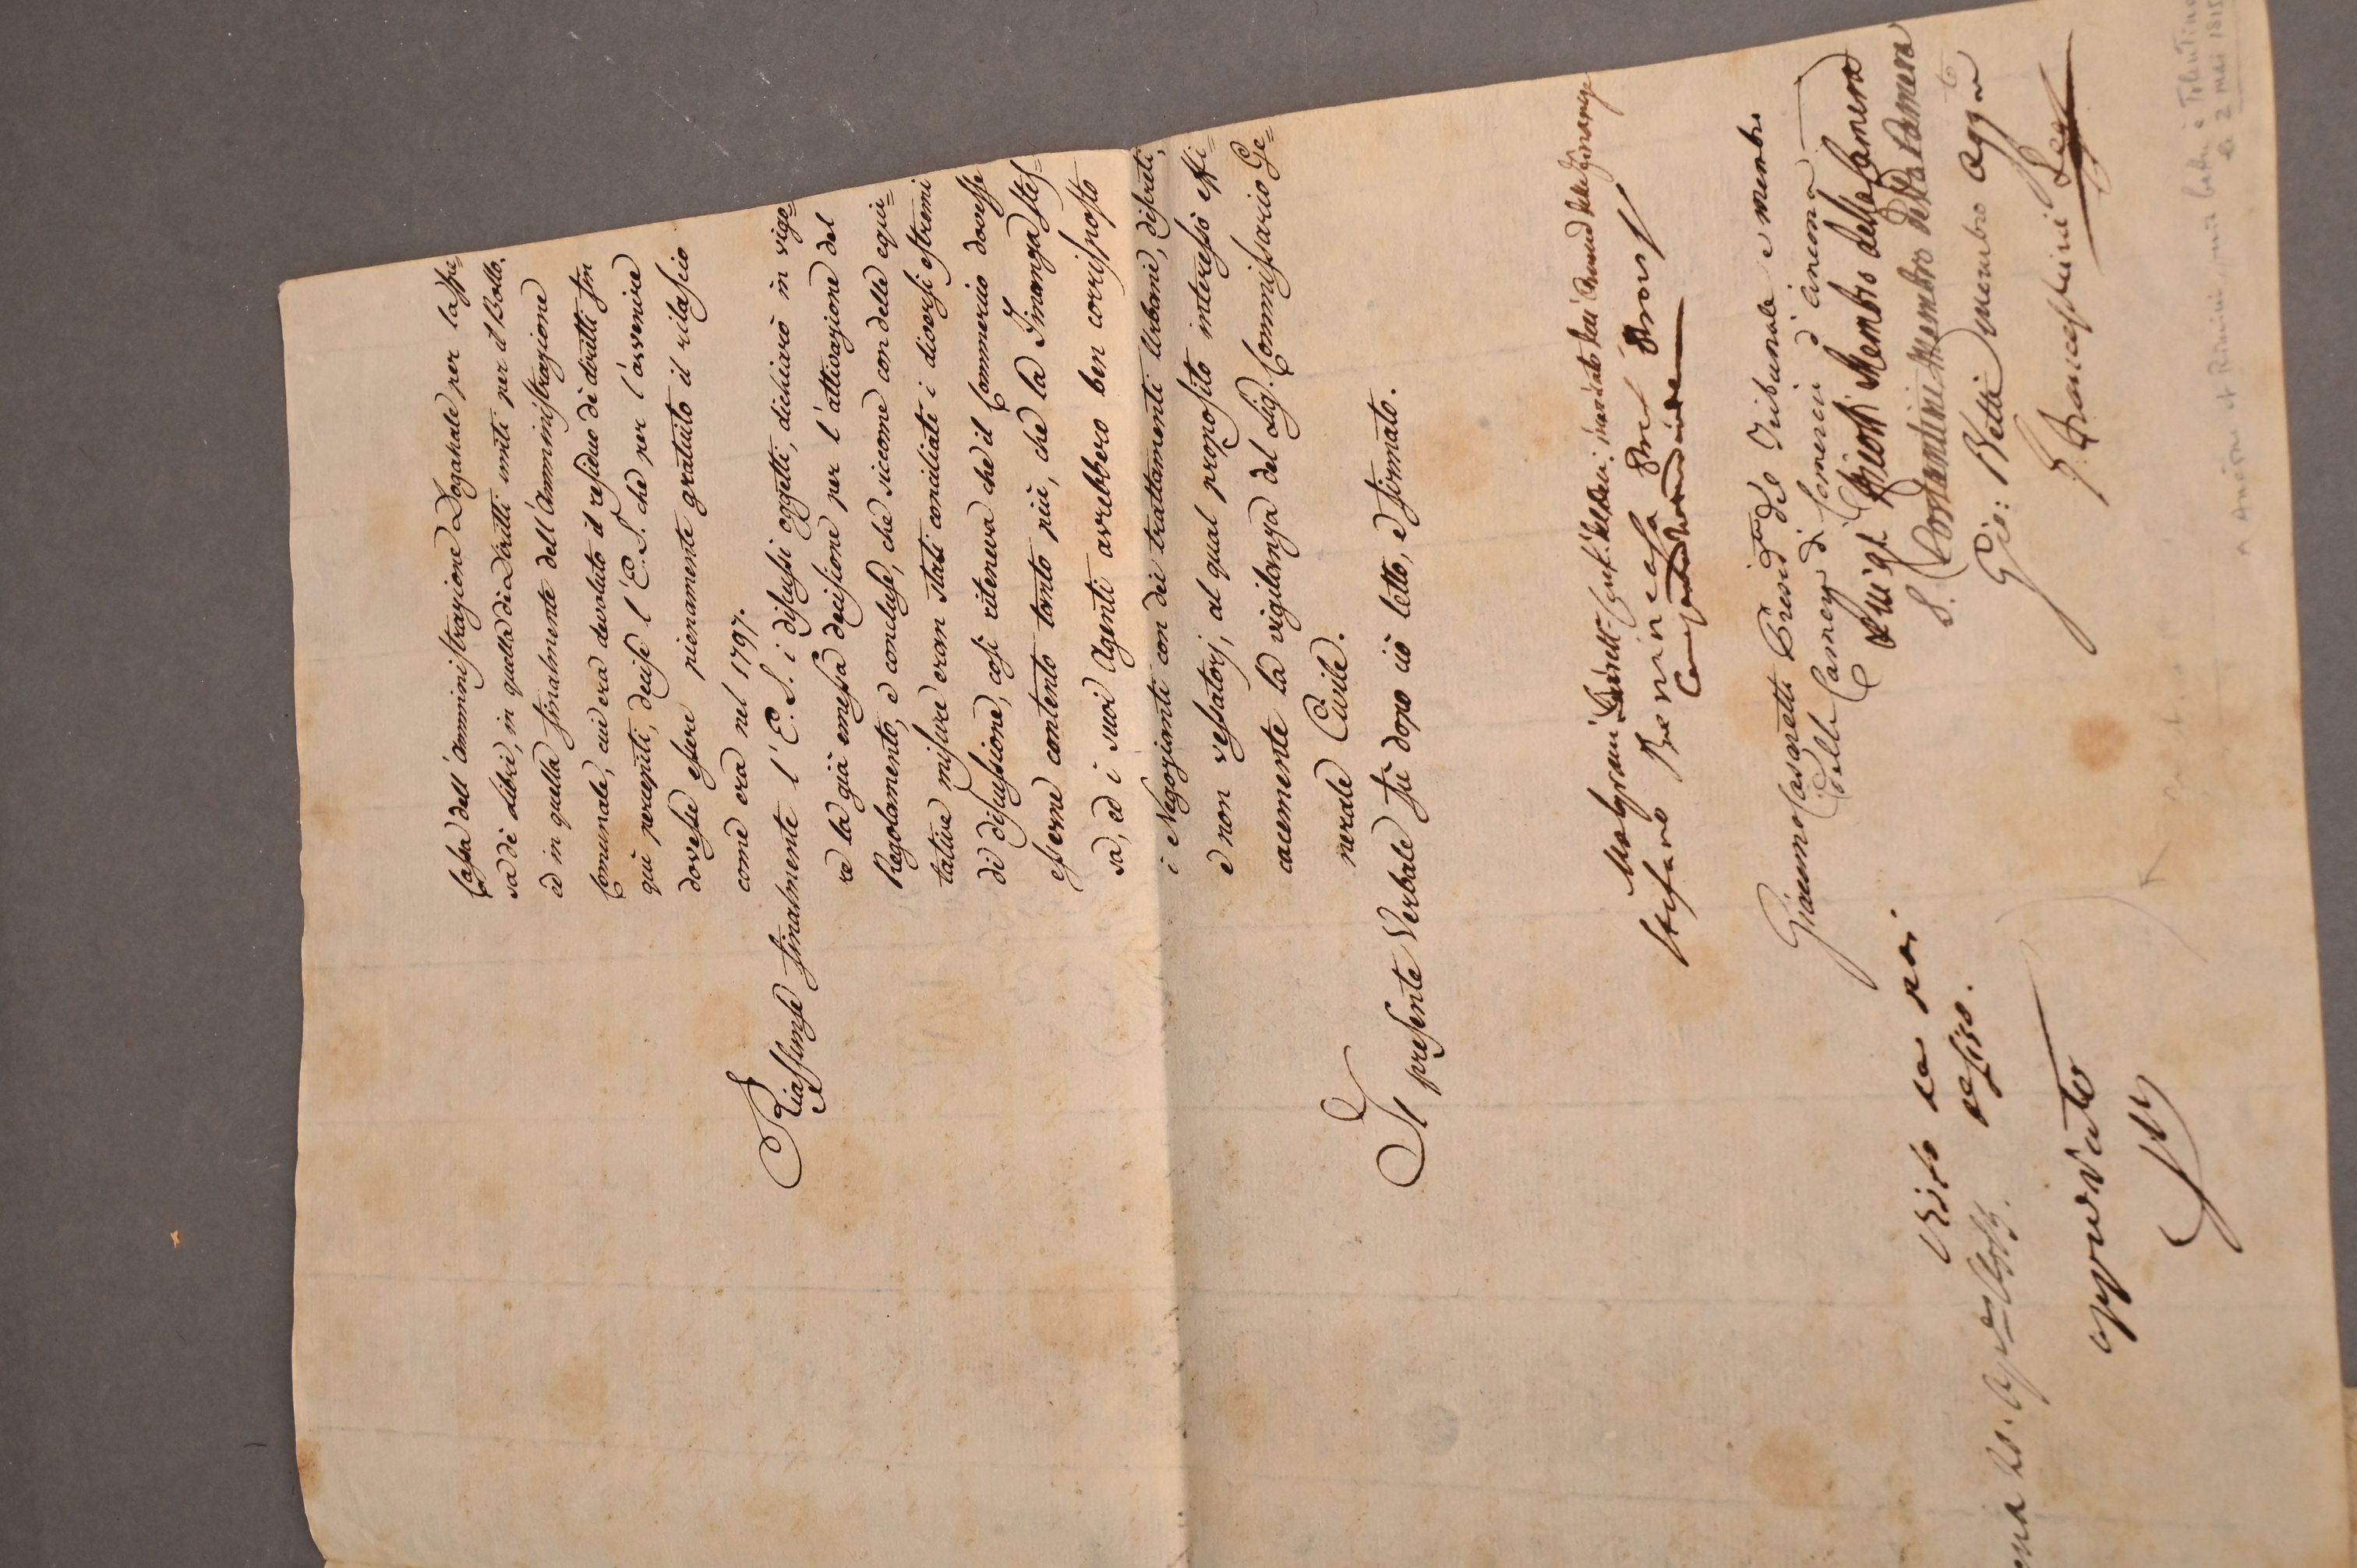 Cassa dell'Amministrazione Doganale per la spe=
sa de' Libri, in quella di Diritti uniti per il Bollo,
ed in quella finalmente dell'Amministrazione
Comunale, cui era devoluto il residuo de' diritti fin
quì percepiti, decise l'E. S. che per l'avvenire
dovesse essere pienamente gratuito il rilascio
come era nel 1797.
Riassunse finalmente l'E. S. i discussi oggetti, dichiarò in vigo=
re la già emessa decisione per l'attivazione del
Regolamento, e concluse, che siccome con delle equi=
tative misure eran stati conciliati i diversi estremi
di discussione, così riteneva che il Commercio dovesse
esserne contento tanto più, che la Finanza stes=
sa, ed i suoi Agenti avrebbero ben corrisposto
i Negozianti con dei trattamenti Urbani, discreti,
e non vessatorj, al qual proposito interessò effi=
cacemente la vigilanza del Sig. Commissario Ge=
nerale Civile.
Il presente Verbale fù dopo ciò letto, e firmato.
Stefano Benincasa
Giacomo Cesaretti Presid.te del Tribunale e membro
della Camera di Comercio d'Ancona
Luigi Membro della Camera
S. Costantini Membro della Camera
Gio: Betti membro agg.to
F. Franceschini Seg
Visto da noi
approvato
a Ancone et Rimini, puis battu à Tolentino
le 2 mai 1815